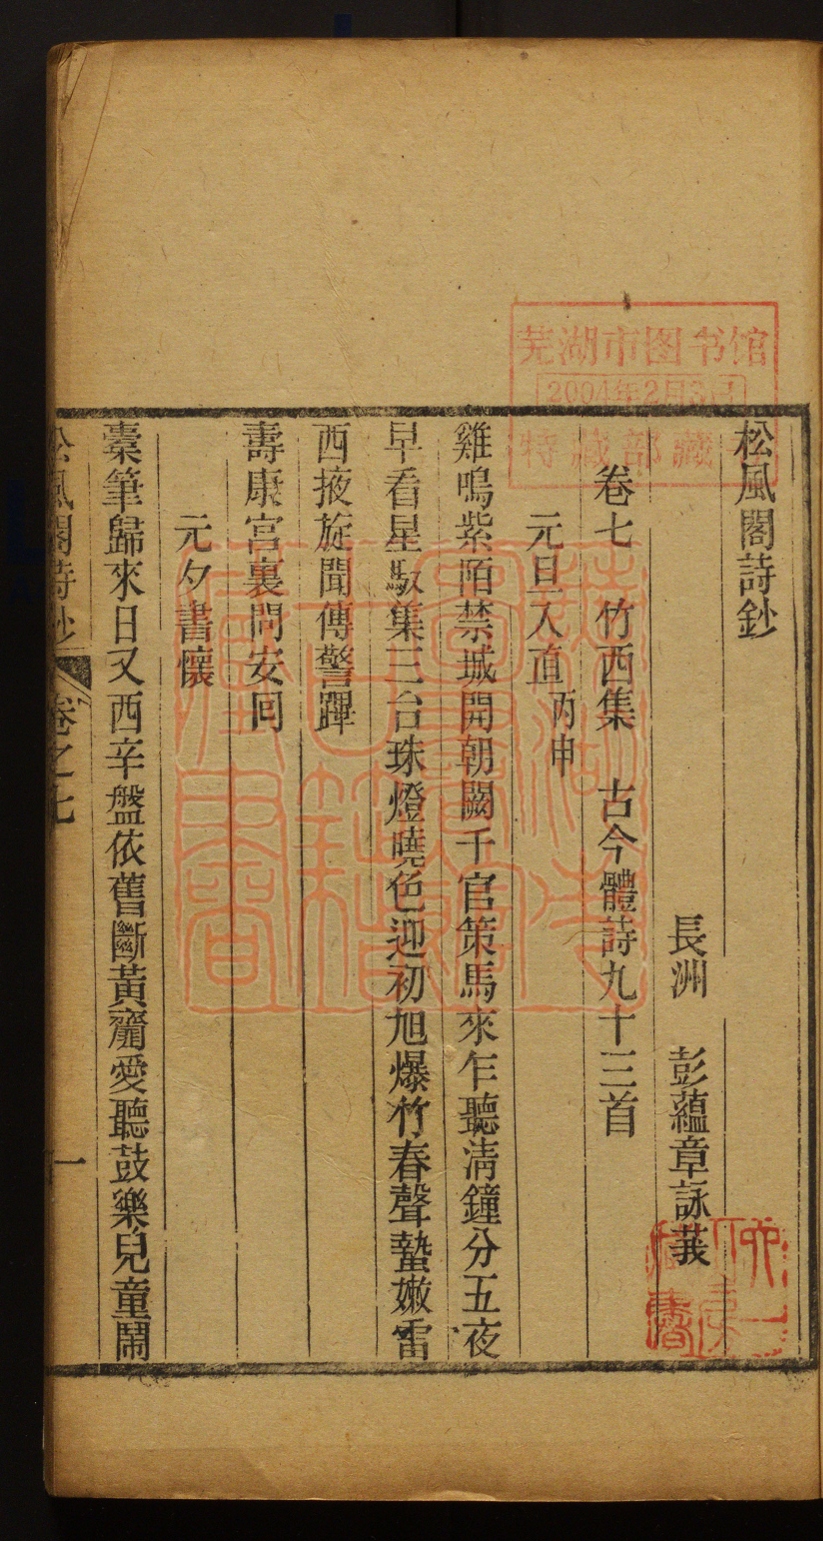 松風閣詩鈔
長洲　彭蘊章詠莪
卷七　竹西集　古今體詩九十三首
元旦入直丙申
雞鳴紫陌禁城開朝闕千官策馬來乍聽清鐘分五夜
早看星馭集三台珠燈曉色迎初旭爆竹春聲蟄嫩雷
西掖旋聞傳警蹕
壽康宮裏問安回
元夕書懷
橐筆歸來日又西辛盤依舊斷黃齏愛聽鼓樂兒童鬧
松風閣詩鈔　卷之七　一
芜湖市图书馆
2004年2月3日
特藏部藏